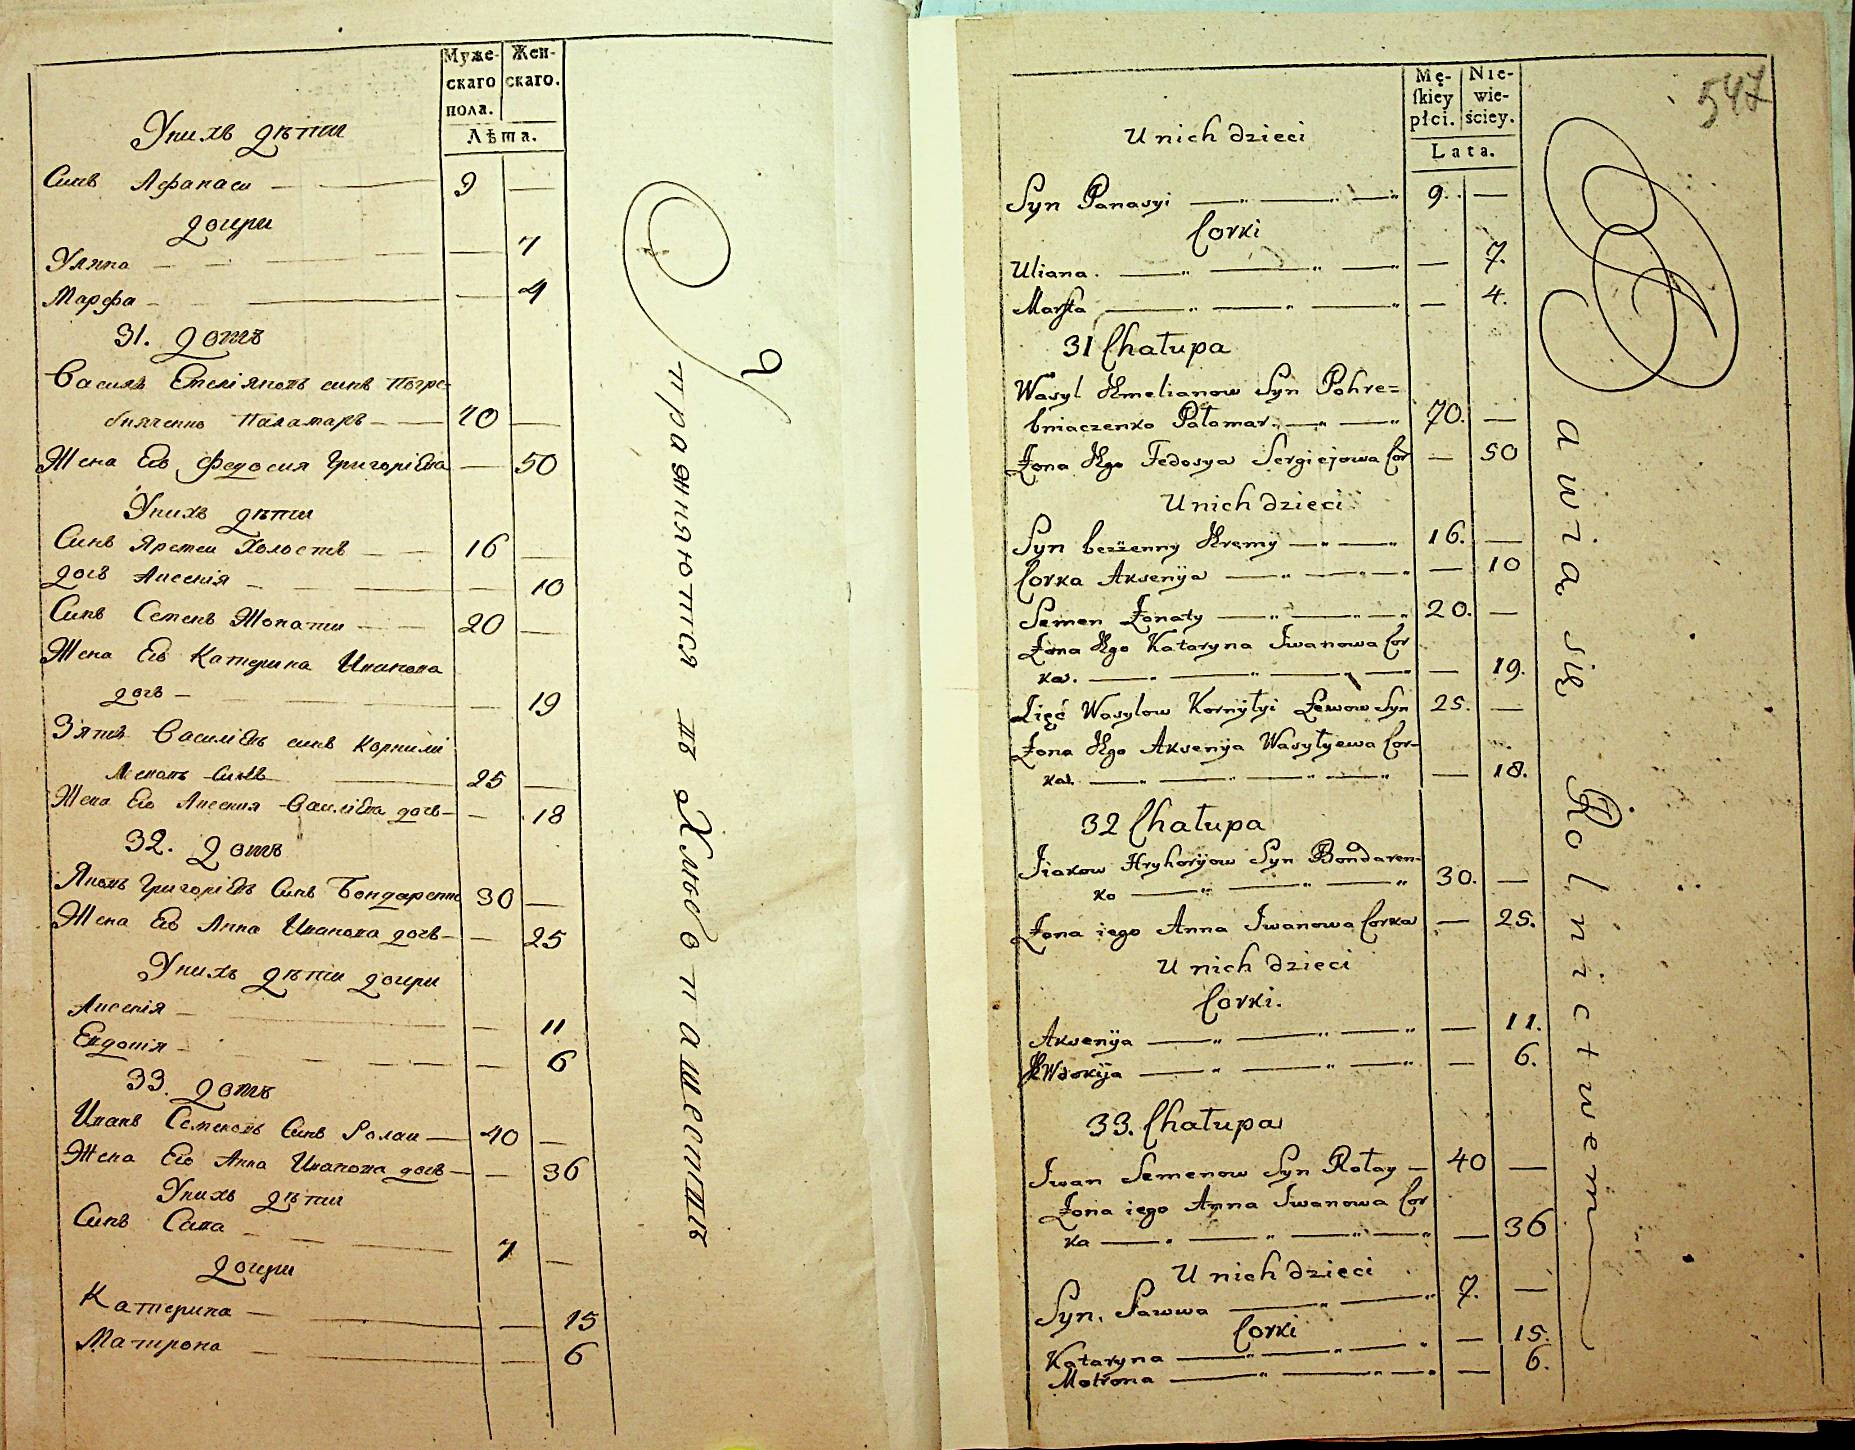 Муже-
скаго
пола.
Жен-
скаго.
Лѣта.
Унихъ дѣти
Синъ Афанаси 9 —
дочери
Уляна — 7
Марфа — 4
31. домъ
Василь Емеліяновъ синъ Погре-
бняченко Паламаръ 70 —
Жена Его Федосия Григоріева — 50
Унихъ дѣти
Синъ Яремеи Холостъ 16 —
дочь Аксенія — 10
Синъ Семенъ Жонати 20 —
Жена Его Катерина Иванова
дочь — 19
Зять Василіевъ синъ Корнилі
Леновъ Синъ 25 —
Жена Его Аксения Василіева дочь — 18
32. домъ
Яковъ Григоріевъ Синъ Бондаренко 30 —
Жена Его Анна Иванова дочь — 25
Унихъ дѣти дочери
Аксенія — 11
Евдокія — 6
33. домъ
Иванъ Семеновъ Синъ Ролаи 40 —
Жена Его Анна Иванова дочь — 36
Унихъ дѣти
Синъ Сава 7 —
дочери
Катерина — 15
Матрона — 6
Упражняются въ Хлѣбопашествѣ
547
Mę-
ſkiey
płci.
Nie-
wie-
ściey.
Lata.
U nich dzieci
Syn Panasyi 9. —
Corki
Uliana. — 7.
Marfta — 4.
31 Chałupa
Wasyl Emelianow Syn Pohre=
bniaczenko Pałomar. 70. —
Żona Ego Fedosya Sergiejowa Cor — 50
U nich dzieci
Syn bezżenny Eremij 16. —
Corka Aksenija — 10
Semen Żonaty 20. —
Żona Ego Kataryna Iwanowa Cor
ka. — 19.
Zięć Wasylow Korniłyi Lewow Syn 25. —
Żona Ego Aksenija Wasylyewa Cor-
ka. — 18.
32 Chałupa
Jiakow Hryhorijow Syn Bondaren-
ko 30. —
Żona iego Anna Iwanowa Corka — 25.
U nich dzieci
Corki.
Aksenija — 11.
EWdokija — 6.
33. Chałupa
Iwan Semenow Syn Rołay 40 —
Żona iego Anna Iwanowa Cor
ka — 36
U nich dzieci
Syn. Sawwa 7. —
Corki
Kataryna — 15.
Motrona — 6.
Bawią się Rolnictwem